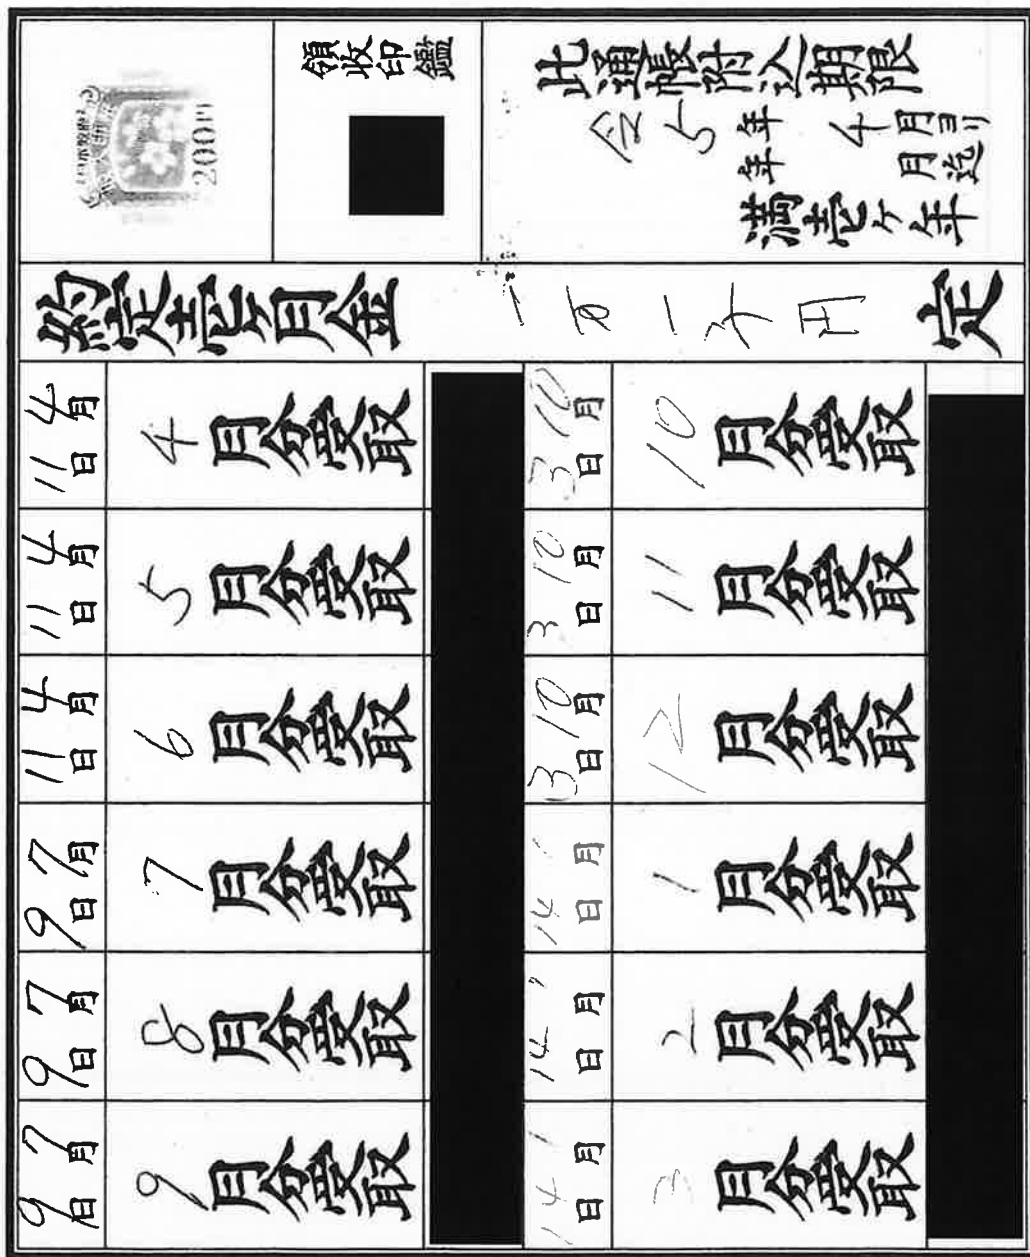 此通帳附込期限
令5年4月ヨリ
年 月迄
満壱ケ年
領収印鑑
200円
約定壱ヶ月金 一万一千円 定
4月11日 4月分受取
4月11日 5月分受取
4月11日 6月分受取
7月9日 7月分受取
7月9日 8月分受取
7月9日 9月分受取
10月3日 10月分受取
10月3日 11月分受取
10月3日 12月分受取
1月14日 1月分受取
〃月14日 2月分受取
1月14日 3月分受取